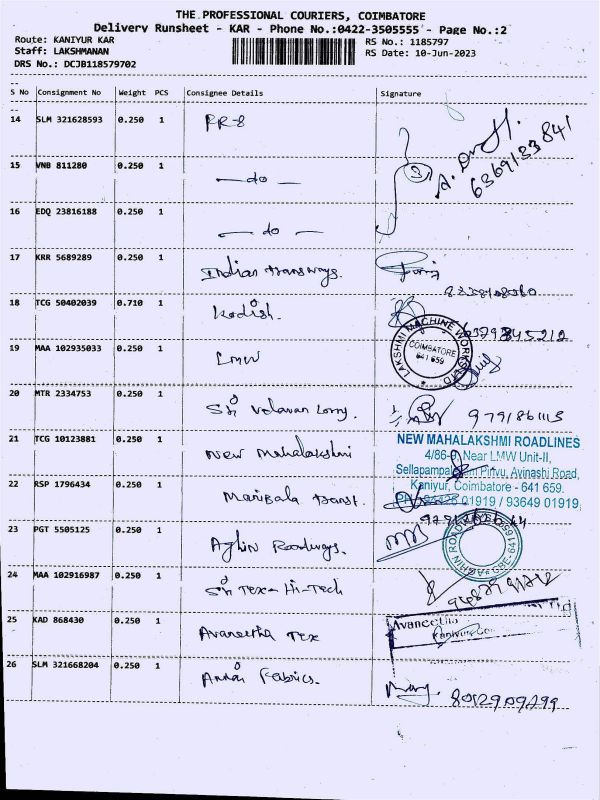 THE PROFESSIONAL COURIERS, COIMBATORE
Delivery Runsheet - KAR - Phone No.:0422-3505555 - Page No.:2
Route: KANIYUR KAR
RS No.: 1185797
Staff: LAKSHMANAN
RS Date: 10-Jun-2023
DRS No.: DCJB118579702
S No Consignment No Weight PCS Consignee Details Signature
14 SLM 321628593 0.250 1 RR-8
A.
6369133841
15 VNB 811280 0.250 1 — do —
3
16 EDQ 23816188 0.250 1 — do —
17 KRR 5689289 0.250 1 Indian transways.
18 TCG 50402039 0.710 1 Kadish.
19 MAA 102935033 0.250 1 LMW
LAKSHMI MACHINE WORKS LTD
COIMBATORE
641 659
20 MTR 2334753 0.250 1 Sri Velavan Lorry.
21 TCG 10123881 0.250 1 New Mahalakshmi
NEW MAHALAKSHMI ROADLINES
4/86- Near LMW Unit-II,
Pirivu, Avinashi Road,
Kaniyur, Coimbatore - 641 659.
01919 / 93649 01919
22 RSP 1796434 0.250 1 Maribala transt.
23 PGT 5505125 0.250 1 Aghin Roadways.
24 MAA 102916987 0.250 1 Sri Tex-Hi-Tech
25 KAD 868430 0.250 1 Avaneetha Tex
Avaneetha
26 SLM 321668204 0.250 1 Annai Fabrics.
8012909299